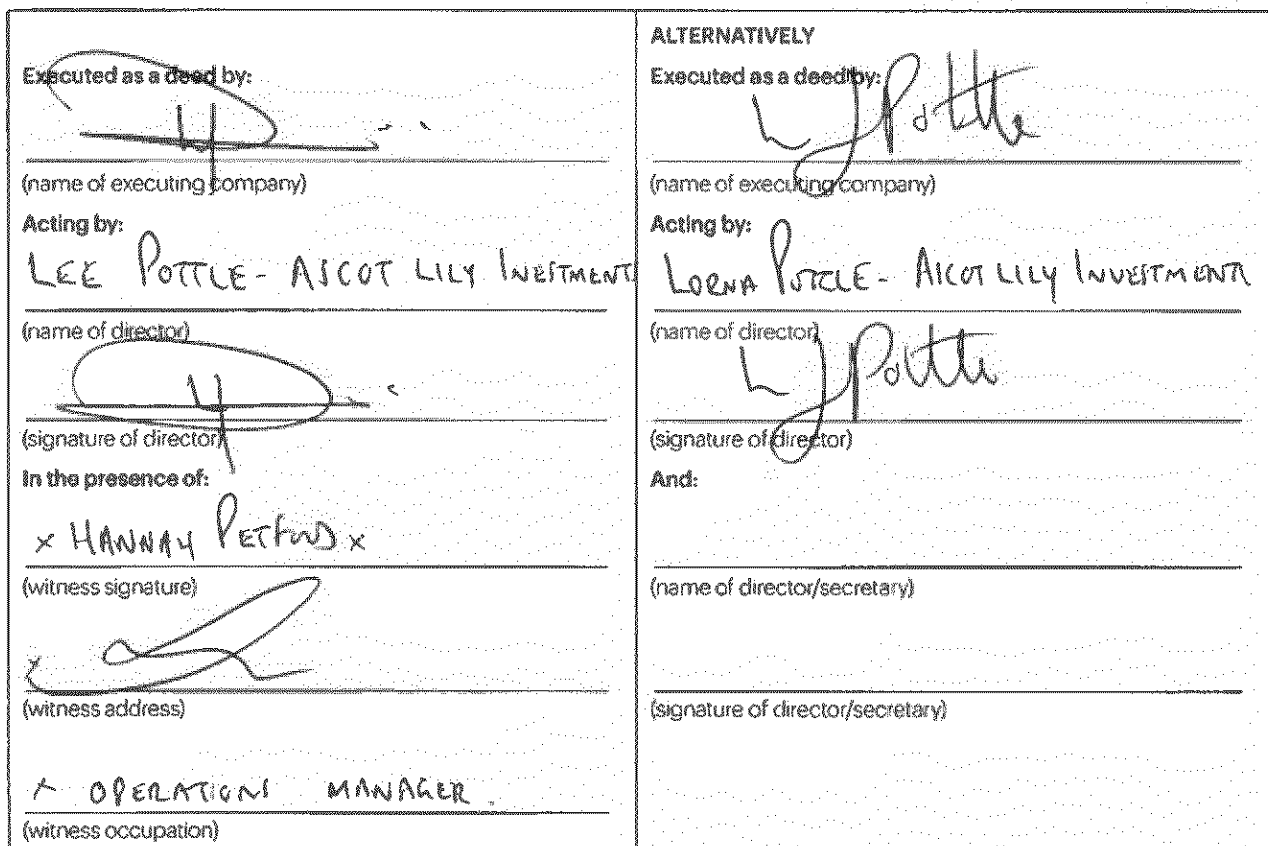 Executed as a deed by:
(name of executing company)
Acting by:
LEE POTTLE - ASCOT LILY INVESTMENT
(name of director)
(signature of director)
In the presence of:
x HANNAH x
(witness signature)
x
(witness address)
x OPERATIONS MANAGER.
(witness occupation)
ALTERNATIVELY
Executed as a deed by:
L J Pottle
(name of executing company)
Acting by:
LORNA POTTLE - ASCOT LILY INVESTMENTS
(name of director)
L J Pottle
(signature of director)
And:
(name of director/secretary)
(signature of director/secretary)